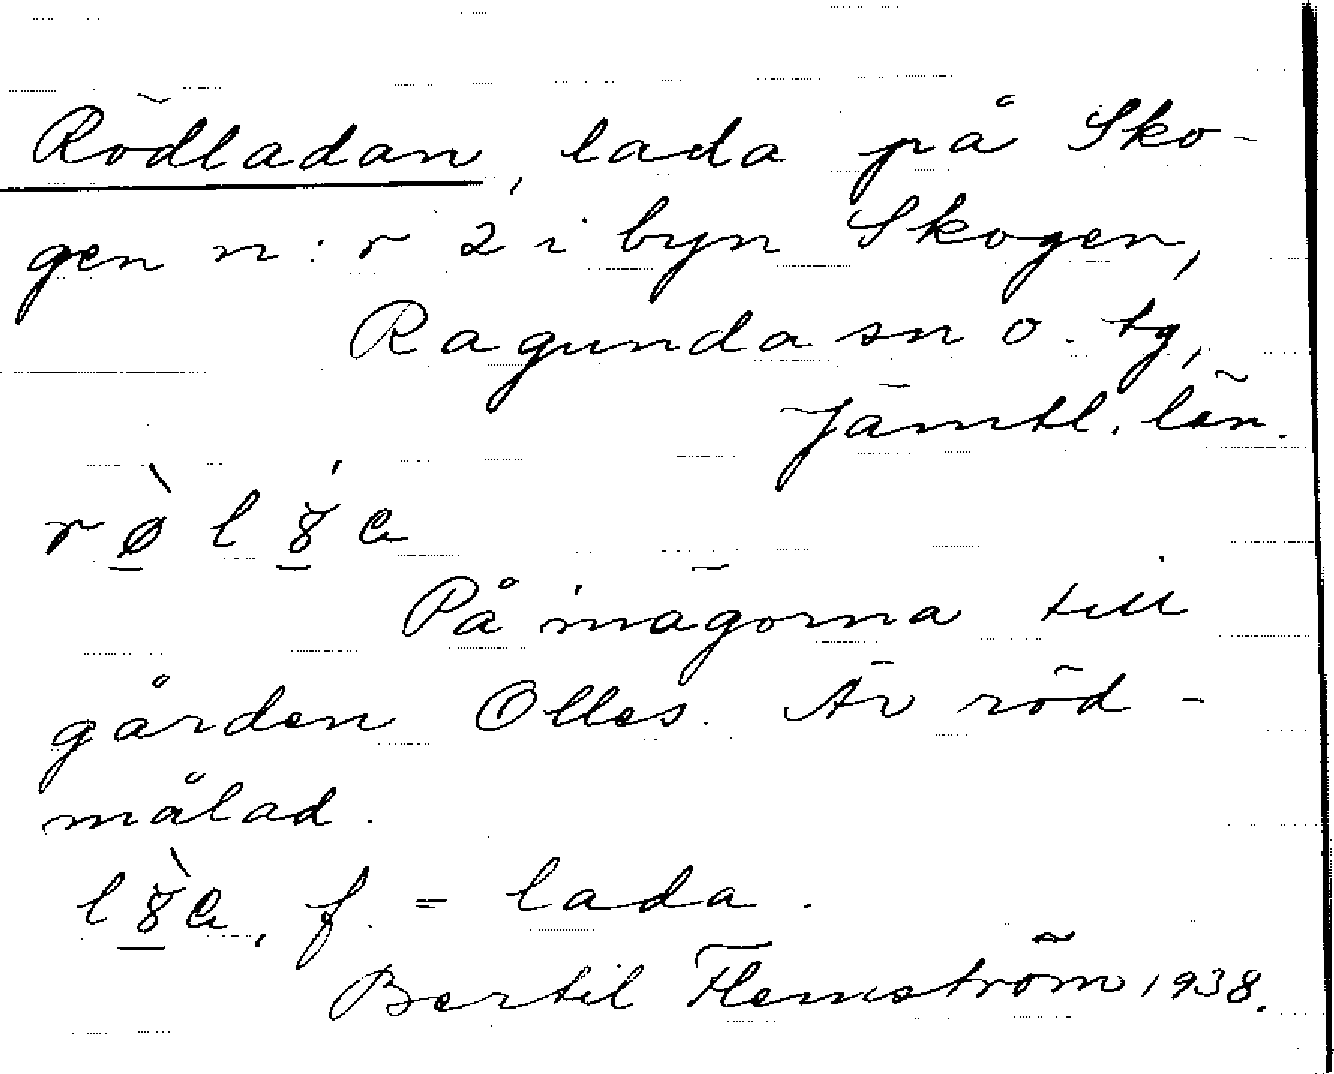 Rödladan, lada på Sko-
gen n:r 2 i byn Skogen,
Ragunda sn o. tg,
Jämtl. län.
På inägorna till
gården Olles. Är röd-
målad.
f. = lada.
Bertil Flemström 1938.